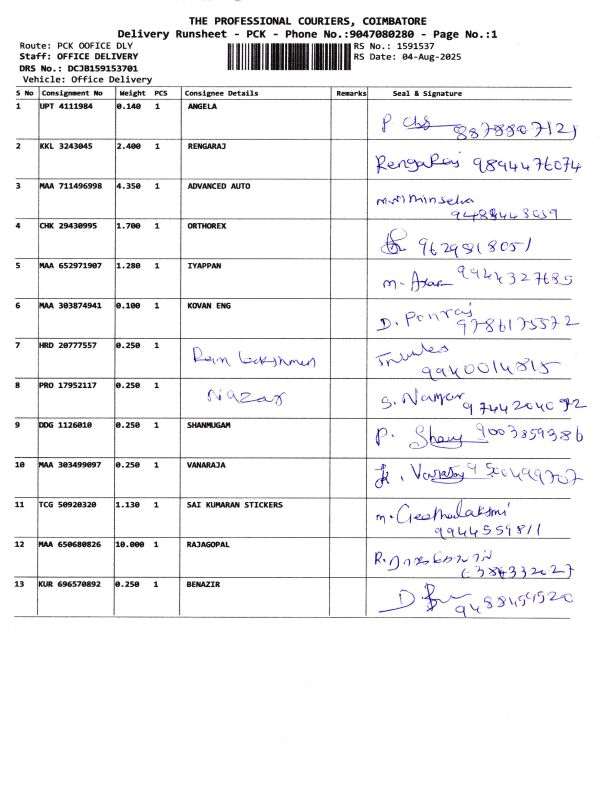 THE PROFESSIONAL COURIERS, COIMBATORE
Delivery Runsheet - PCK - Phone No.:9047080280 - Page No.:1
Route: PCK OOFICE DLY RS No.: 1591537
Staff: OFFICE DELIVERY RS Date: 04-Aug-2025
DRS No.: DCJB159153701
Vehicle: Office Delivery
S No Consignment No Weight PCS Consignee Details Remarks Seal & Signature
1 UPT 4111984 0.140 1 ANGELA
2 KKL 3243045 2.400 1 RENGARAJ
Rengaraj 9894476074
3 MAA 711496998 4.350 1 ADVANCED AUTO
4 CHK 29430995 1.700 1 ORTHOREX
9629818051
5 MAA 652971907 1.280 1 IYAPPAN
9944327685
6 MAA 303874941 0.100 1 KOVAN ENG
D. Ponraj
9786175572
7 HRD 20777557 0.250 1
9940014815
8 PRO 17952117 0.250 1 Nazar
9744204092
9 DDG 1126010 0.250 1 SHANMUGAM
P. 9003859386
10 MAA 303499097 0.250 1 VANARAJA
11 TCG 50920320 1.130 1 SAI KUMARAN STICKERS
m. Geethalakshmi
9944559811
12 MAA 650680826 10.000 1 RAJAGOPAL
13 KUR 696570892 0.250 1 BENAZIR
9488459520